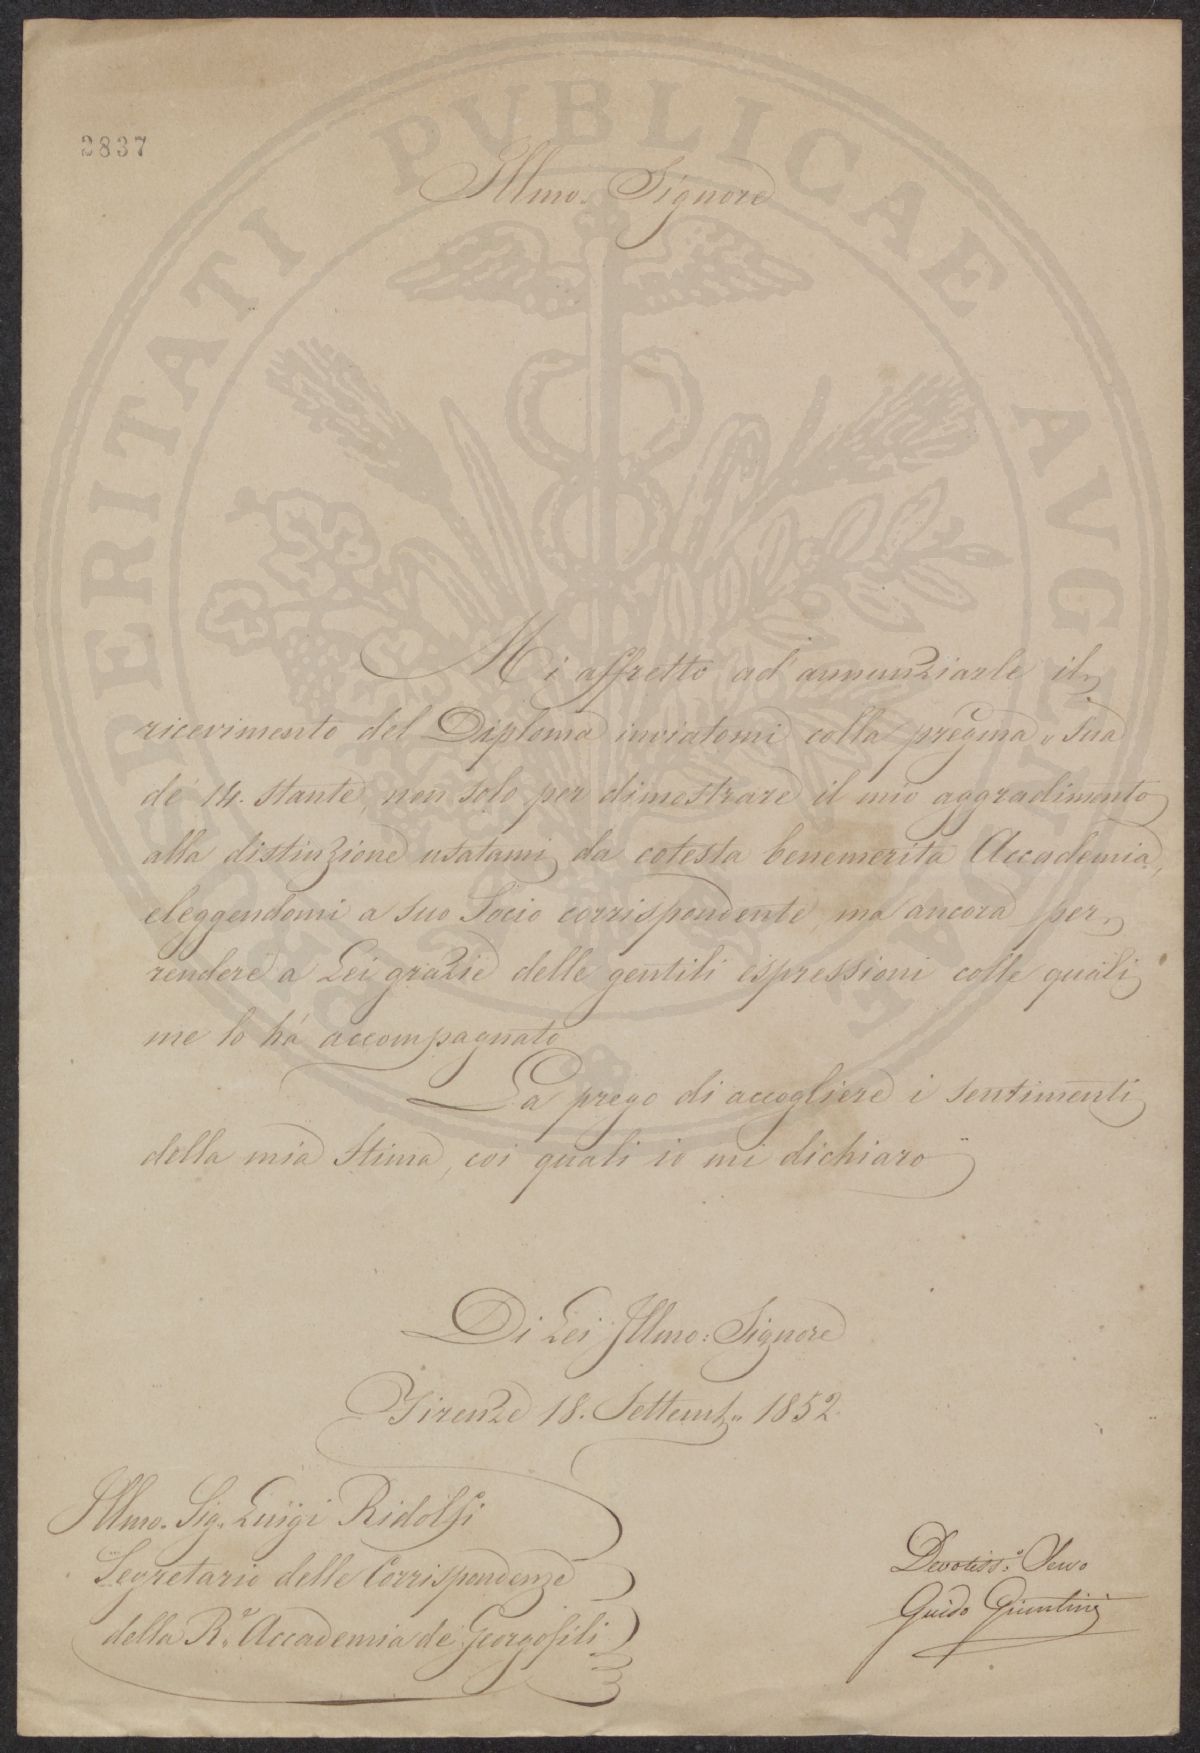 PROSPERITATI PUBLICAE AUGENDAE
2837
Illmo. Signore
Mi affretto ad' annunziarle il
ricevimento del Diploma inviatomi colla pregma Sua
de' 14. stante, non solo per dimostrare il mio aggradimento
alla distinzione usatami da cotesta benemerita Accademia,
eleggendomi a suo Socio corrispondente, ma ancora per
rendere a Lei grazie delle gentili espressioni colle quali
me lo há accompagnato
La prego di accogliere i sentimenti
della mia stima, coi quali io mi dichiaro
Di Lei Illmo: Signore
Firenze 18. Settemb. 1852.
Illmo. Sig. Luigi Ridolfi
Segretario delle Corrispondenze
della Ra. Accademia de Georgofili
Devotiss:o Servo
Guido Giuntini